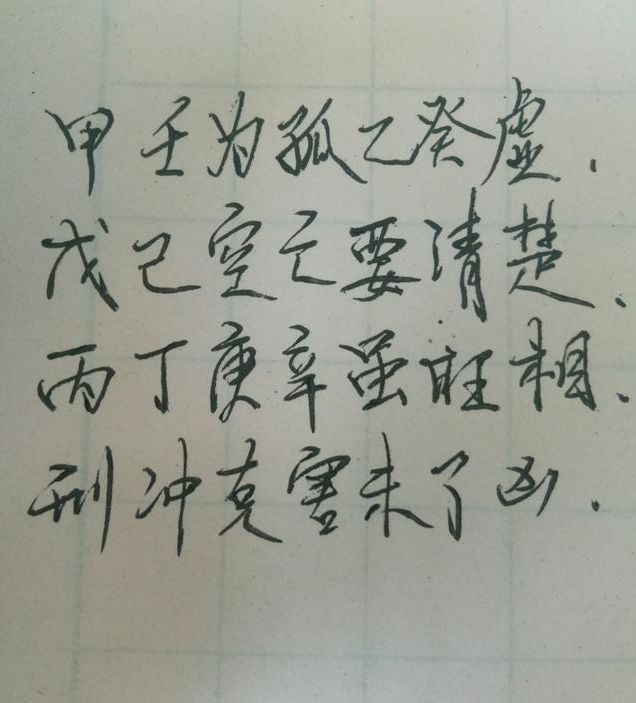 甲壬为孤乙癸虚.
戊己空亡要清楚、
丙丁庚辛虽旺相、
刑冲克害未了凶.